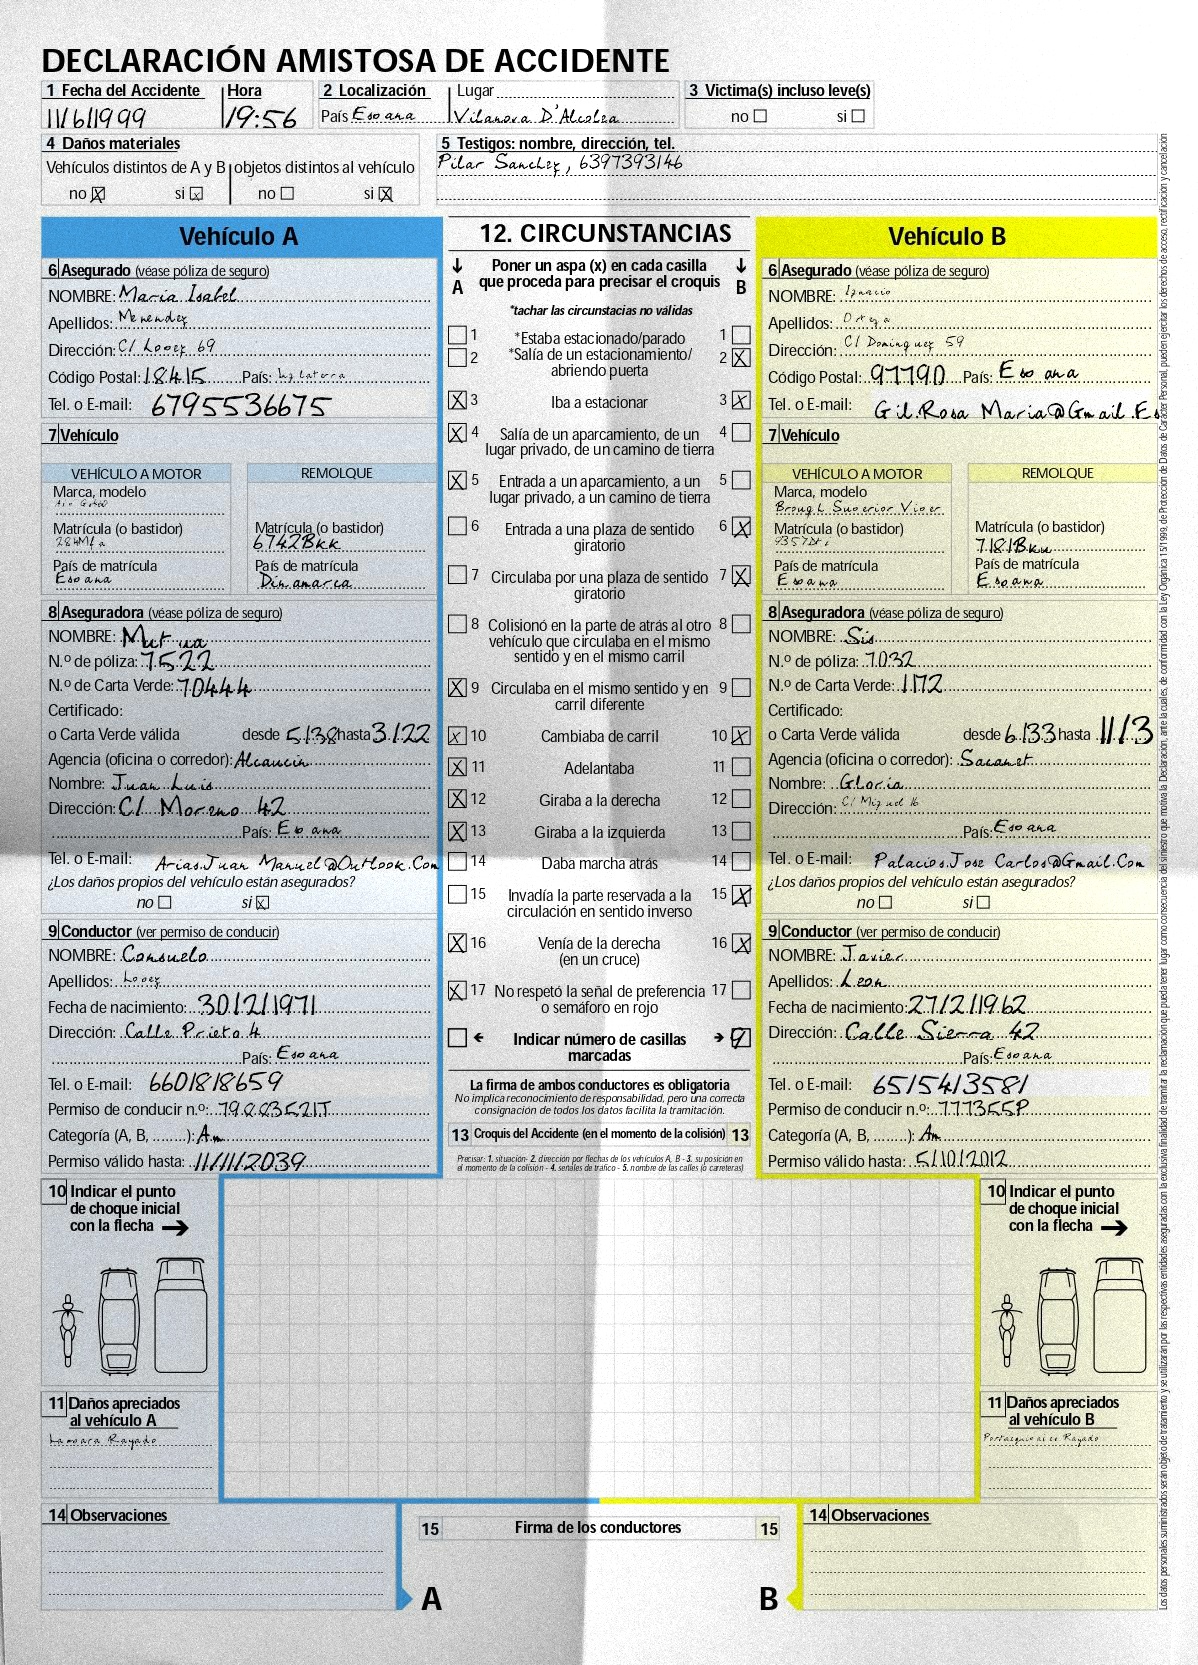 DECLARACIÓN AMISTOSA DE ACCIDENTE
1 Fecha del Accidente Hora 2 Localización Lugar 3 Victima(s) incluso leve(s)
11/6/1999 19:56 País Espana Vilanova D'Alcolea no si
4 Daños materiales
Vehículos distintos de A y B objetos distintos al vehículo
no X si x no si X
5 Testigos: nombre, dirección, tel.
Pilar Sanchez, 6397393146
Vehículo A
6 Asegurado (véase póliza de seguro)
NOMBRE: Maria Isabel
Apellidos: Menendez
Dirección: C/ Lopez 69
Código Postal: 18415 País: Inglaterra
Tel. o E-mail: 6795536675
7 Vehículo
VEHÍCULO A MOTOR REMOLQUE
Marca, modelo
Matrícula (o bastidor) Matrícula (o bastidor)
6742Bkk
País de matrícula País de matrícula
Espana Dinamarca
8 Aseguradora (véase póliza de seguro)
NOMBRE: Mutua
N.º de póliza: 7522
N.º de Carta Verde: 70444
Certificado:
o Carta Verde válida desde 5/38 hasta 3/22
Agencia (oficina o corredor): Alcaucin
Nombre: Juan Luis
Dirección: C/ Moreno 42
País: Espana
Tel. o E-mail: Arias.Juan Manuel@Outlook.Com
¿Los daños propios del vehículo están asegurados?
no si x
9 Conductor (ver permiso de conducir)
NOMBRE: Consuelo
Apellidos: Lopez
Fecha de nacimiento: 30/2/1971
Dirección: Calle Prieto 4
País: Espana
Tel. o E-mail: 6601818659
Permiso de conducir n.º: 79883521T
Categoría (A, B, ........): Am
Permiso válido hasta: 11/11/2039
12. CIRCUNSTANCIAS
Poner un aspa (x) en cada casilla
A que proceda para precisar el croquis B
*tachar las circunstacias no válidas
1 *Estaba estacionado/parado 1
2 *Salía de un estacionamiento/ 2 X
abriendo puerta
X 3 Iba a estacionar 3 X
X 4 Salía de un aparcamiento, de un 4
lugar privado, de un camino de tierra
X 5 Entrada a un aparcamiento, a un 5
lugar privado, a un camino de tierra
6 Entrada a una plaza de sentido 6 X
giratorio
7 Circulaba por una plaza de sentido 7 X
giratorio
8 Colisionó en la parte de atrás al otro 8
vehículo que circulaba en el mismo
sentido y en el mismo carril
X 9 Circulaba en el mismo sentido y en 9
carril diferente
X 10 Cambiaba de carril 10 X
X 11 Adelantaba 11
X 12 Giraba a la derecha 12
X 13 Giraba a la izquierda 13
14 Daba marcha atrás 14
15 Invadía la parte reservada a la 15 X
circulación en sentido inverso
X 16 Venía de la derecha 16 X
(en un cruce)
X 17 No respetó la señal de preferencia 17
o semáforo en rojo
Indicar número de casillas 9
marcadas
La firma de ambos conductores es obligatoria
No implica reconocimiento de responsabilidad, pero una correcta
consignación de todos los datos facilita la tramitación.
13 Croquis del Accidente (en el momento de la colisión) 13
Precisar: 1. situación- 2. dirección por flechas de los vehículos A, B - 3. su posición en
el momento de la colisión - 4. señales de tráfico - 5. nombre de las calles (o carreteras)
Vehículo B
6 Asegurado (véase póliza de seguro)
NOMBRE: Ignacio
Apellidos: Ortega
Dirección: C/ Dominguez 59
Código Postal: 97790 País: Espana
Tel. o E-mail: Gil.Rosa Maria@Gmail.Es
7 Vehículo
VEHÍCULO A MOTOR REMOLQUE
Marca, modelo
Brough Superior Viper
Matrícula (o bastidor) Matrícula (o bastidor)
7181Bku
País de matrícula País de matrícula
Espana Espana
8 Aseguradora (véase póliza de seguro)
NOMBRE: Sis
N.º de póliza: 7032
N.º de Carta Verde: 1172
Certificado:
o Carta Verde válida desde 6/33 hasta 11/3
Agencia (oficina o corredor): Sacanet
Nombre: Gloria
Dirección: C/ Miguel 16
País: Espana
Tel. o E-mail: Palacios.Jose Carlos@Gmail.Com
¿Los daños propios del vehículo están asegurados?
no si
9 Conductor (ver permiso de conducir)
NOMBRE: Javier
Apellidos: Leon
Fecha de nacimiento: 27/2/1962
Dirección: Calle Sierra 42
País: Espana
Tel. o E-mail: 6515413581
Permiso de conducir n.º: 777355P
Categoría (A, B, ........): Am
Permiso válido hasta: 5/10/2012
10 Indicar el punto
de choque inicial
con la flecha
11 Daños apreciados
al vehículo A
Lampara Rayado
10 Indicar el punto
de choque inicial
con la flecha
11 Daños apreciados
al vehículo B
Portaequipajes Rayado
14 Observaciones
15 Firma de los conductores 15
A B
14 Observaciones
Los datos personales suministrados serán objeto de tratamiento y se utilizarán por las respectivas entidades aseguradas con la exclusiva finalidad de tramitar la reclamación que pueda tener lugar como consecuencia del siniestro que motiva la Declaración, ante la cuales, de conformidad con la Ley Orgánica 15/1999, de Protección de Datos de Carácter Personal, pueden ejercitar los derechos de acceso, rectificación y cancelación